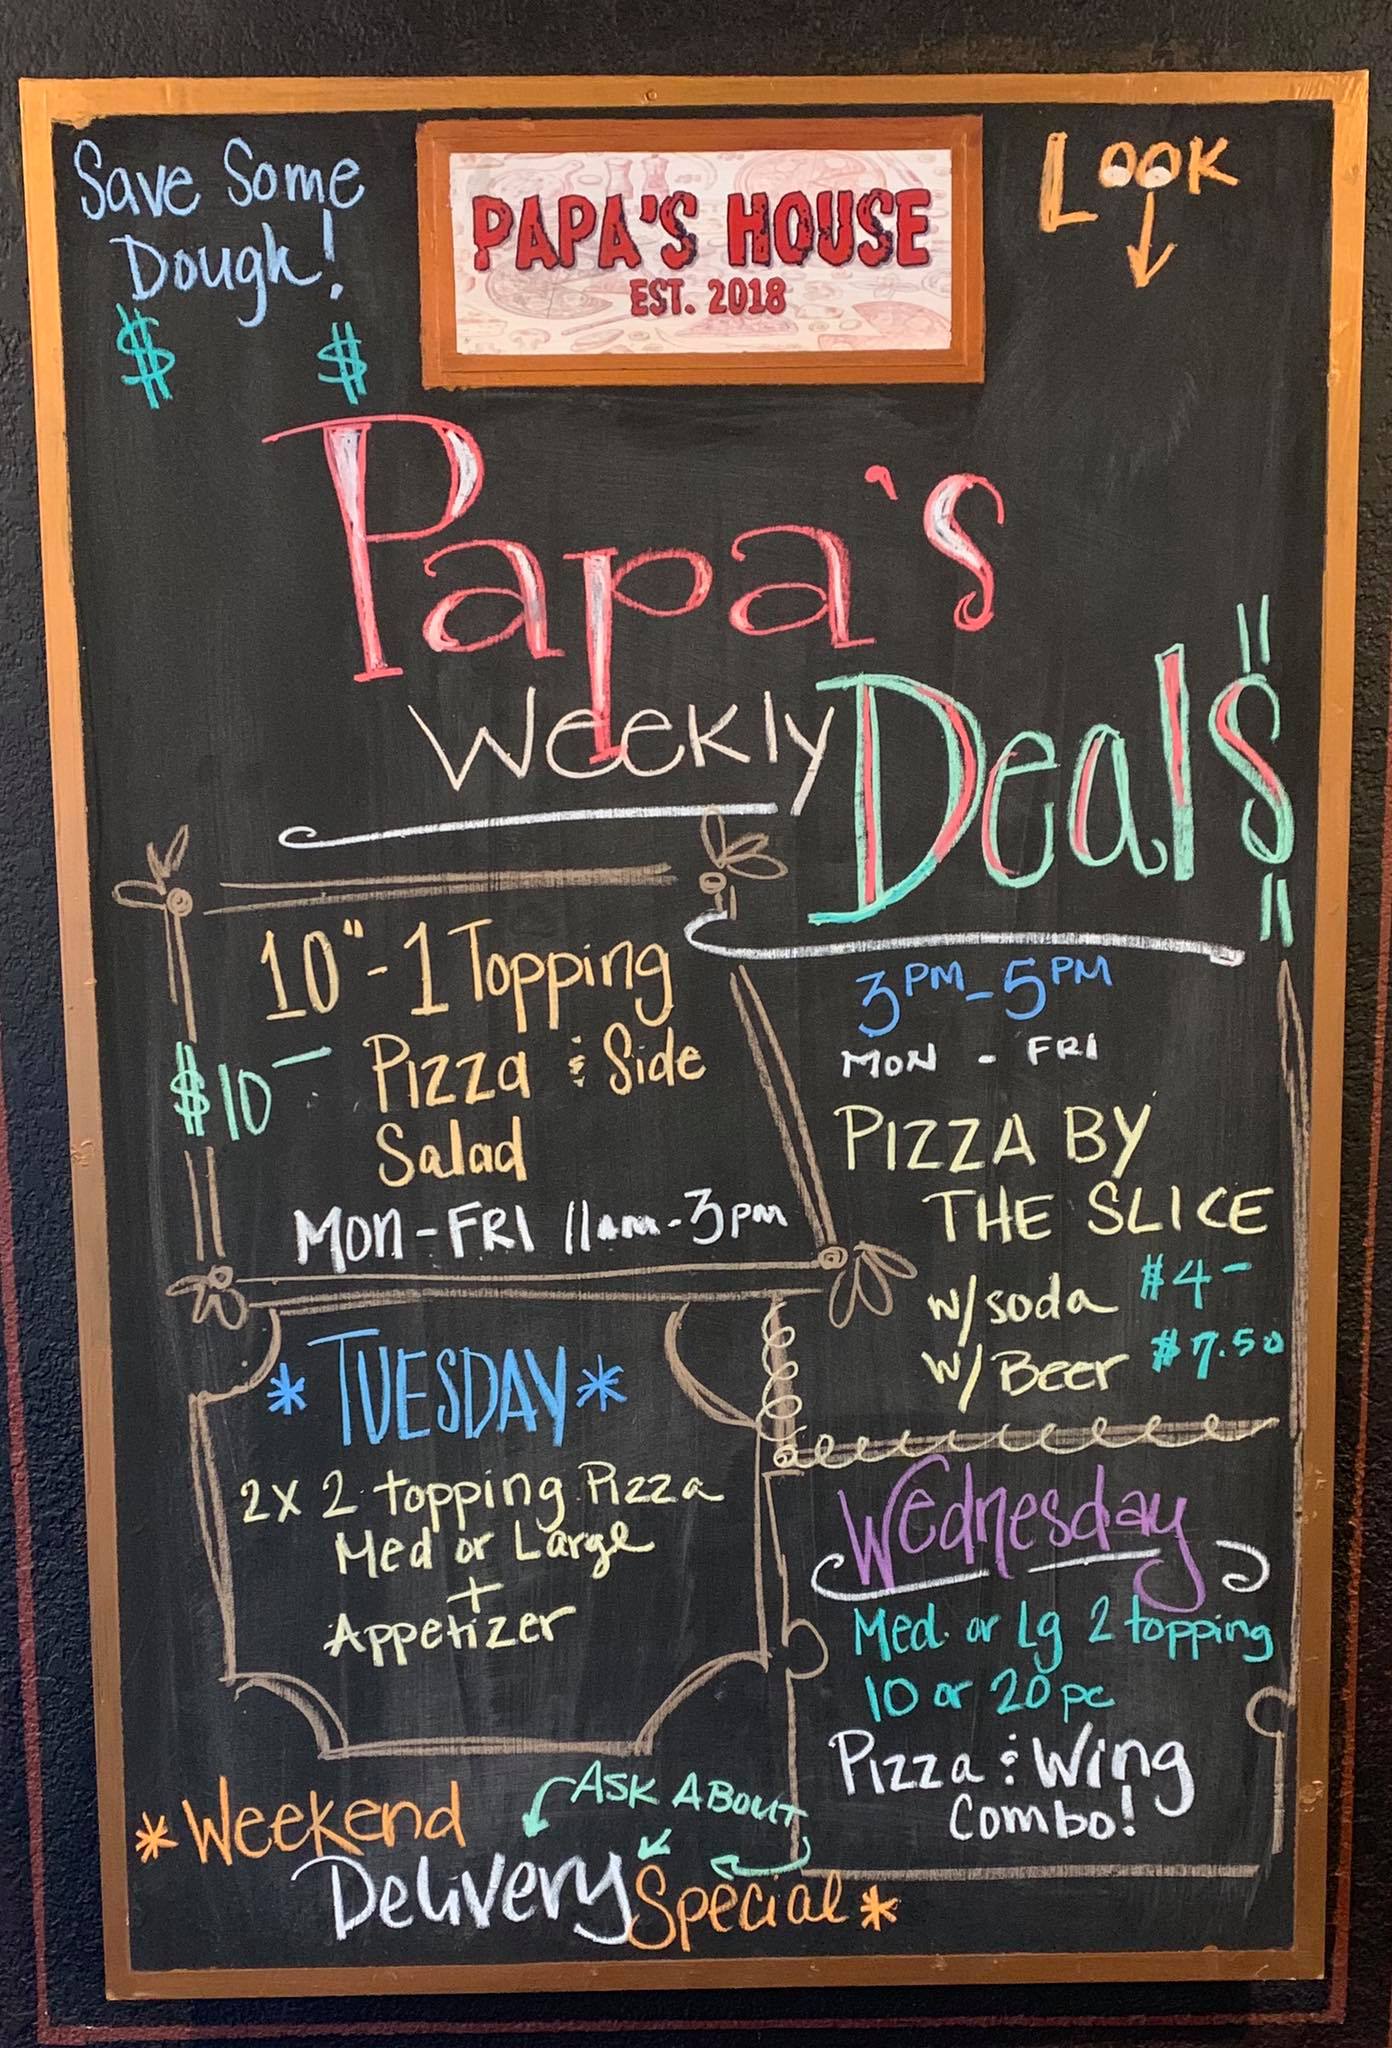 Save Some
Dough!
$ $
PAPA'S HOUSE
EST. 2018
LOOK
Papa's
Weekly
Deals
10" - 1 Topping
$10 — Pizza & Side
Salad
MON - FRI 11am - 3pm
3PM - 5PM
MON - FRI
PIZZA BY
THE SLICE
w/ soda $4 -
w/ Beer $7.50
* TUESDAY *
2x 2 topping Pizza
Med or Large
+
Appetizer
Wednesday
Med. or Lg 2 topping
10 or 20 pc
Pizza & Wing
Combo!
ASK ABOUT
* Weekend
Delivery Special *